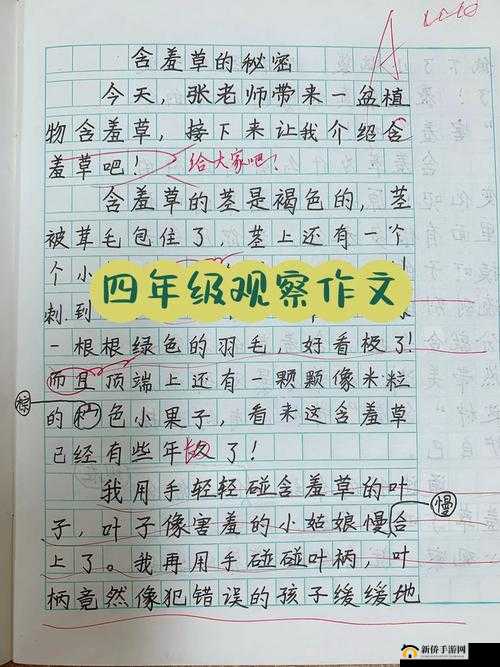 A
含羞草的秘密
今天，张老师带来一盆植
物含羞草，接下来让我介绍含
羞草吧！ 给大家吧？
含羞草的茎是褐色的，茎
被茸毛包住了，茎上还有一个
个小
四年级观察作文
刺.到
一根根绿色的羽毛，好看极了！
而且顶端上还有一颗颗像米粒
的 色小果子，看来这含羞草
棕
已经有些年 了！
我用手轻轻碰含羞草的叶
子，叶子像害羞的小姑娘慢合
慢
上了。我再用手碰碰叶柄，叶
柄竟然像犯错误的孩子缓缓地
新侨手游网